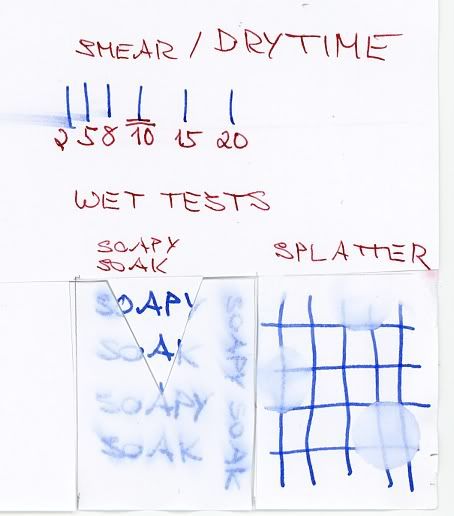 SMEAR / DRYTIME
2 5 8 10 15 20
WET TESTS
SOAPY
SOAK
SPLATTER
SOAPY
SOAK
SOAPY
SOAK
SOAPY SOAK